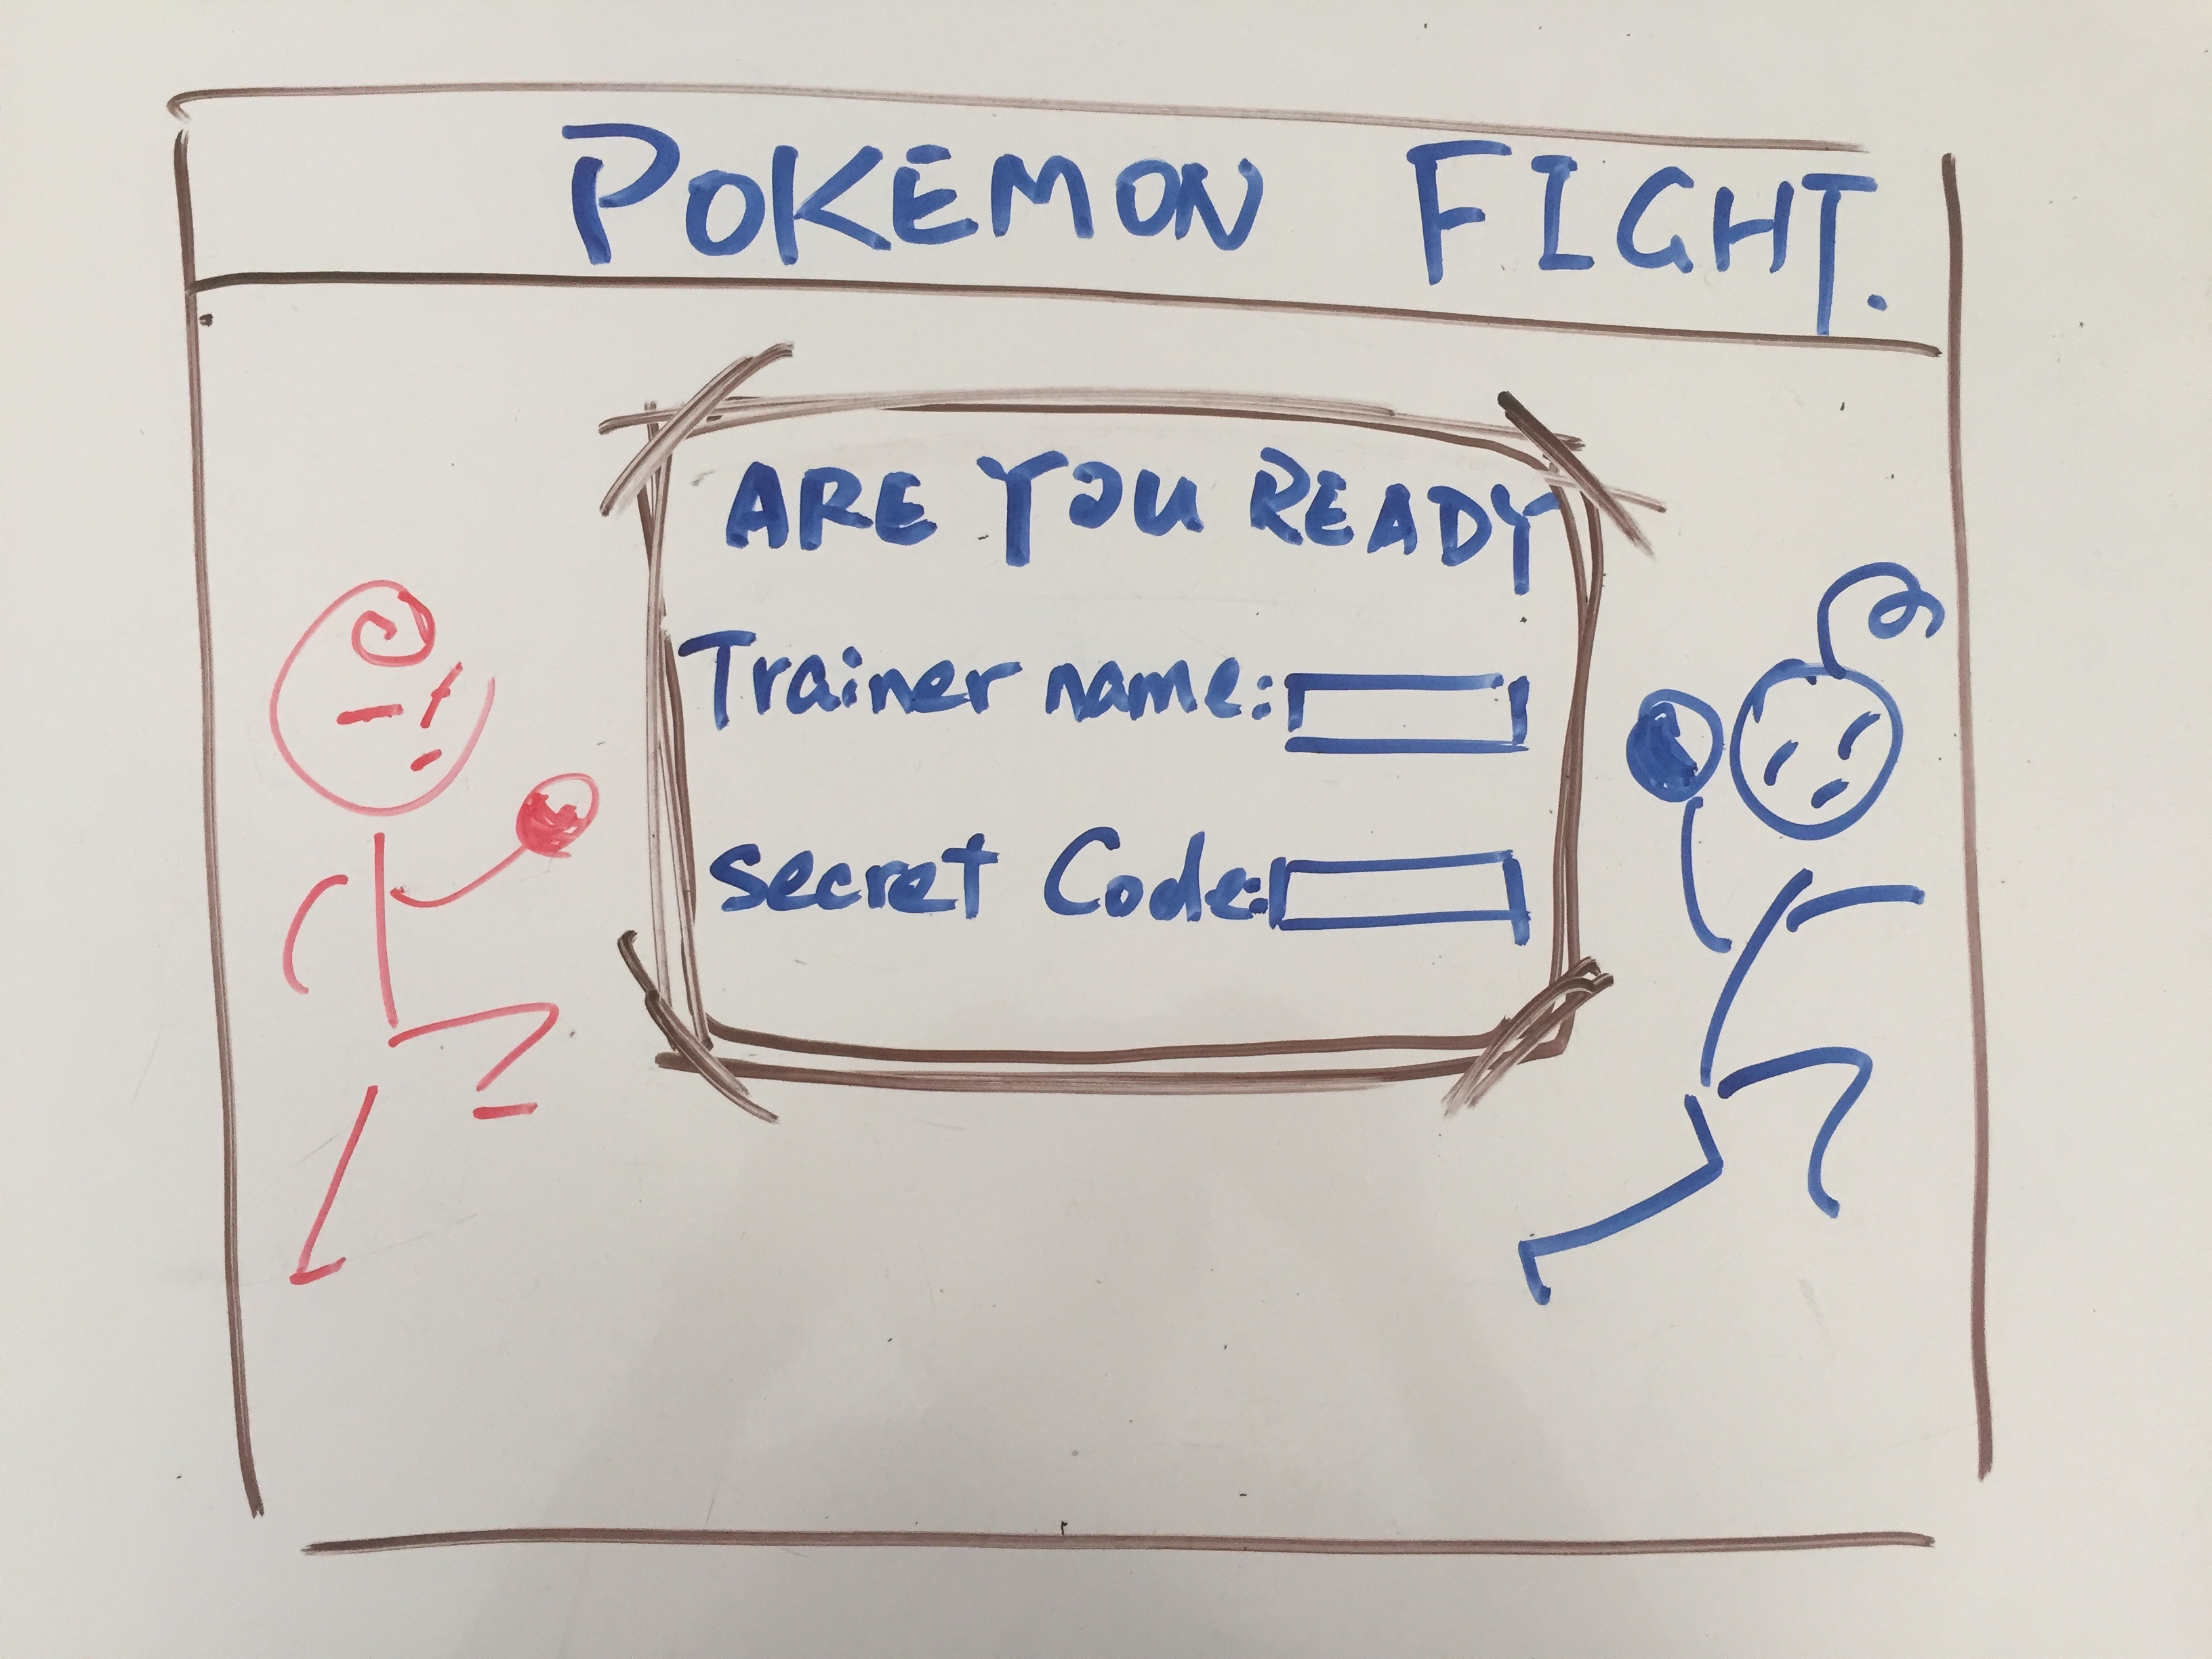 POKEMON FIGHT.
ARE YOU READY
Trainer name:
Secret Code: